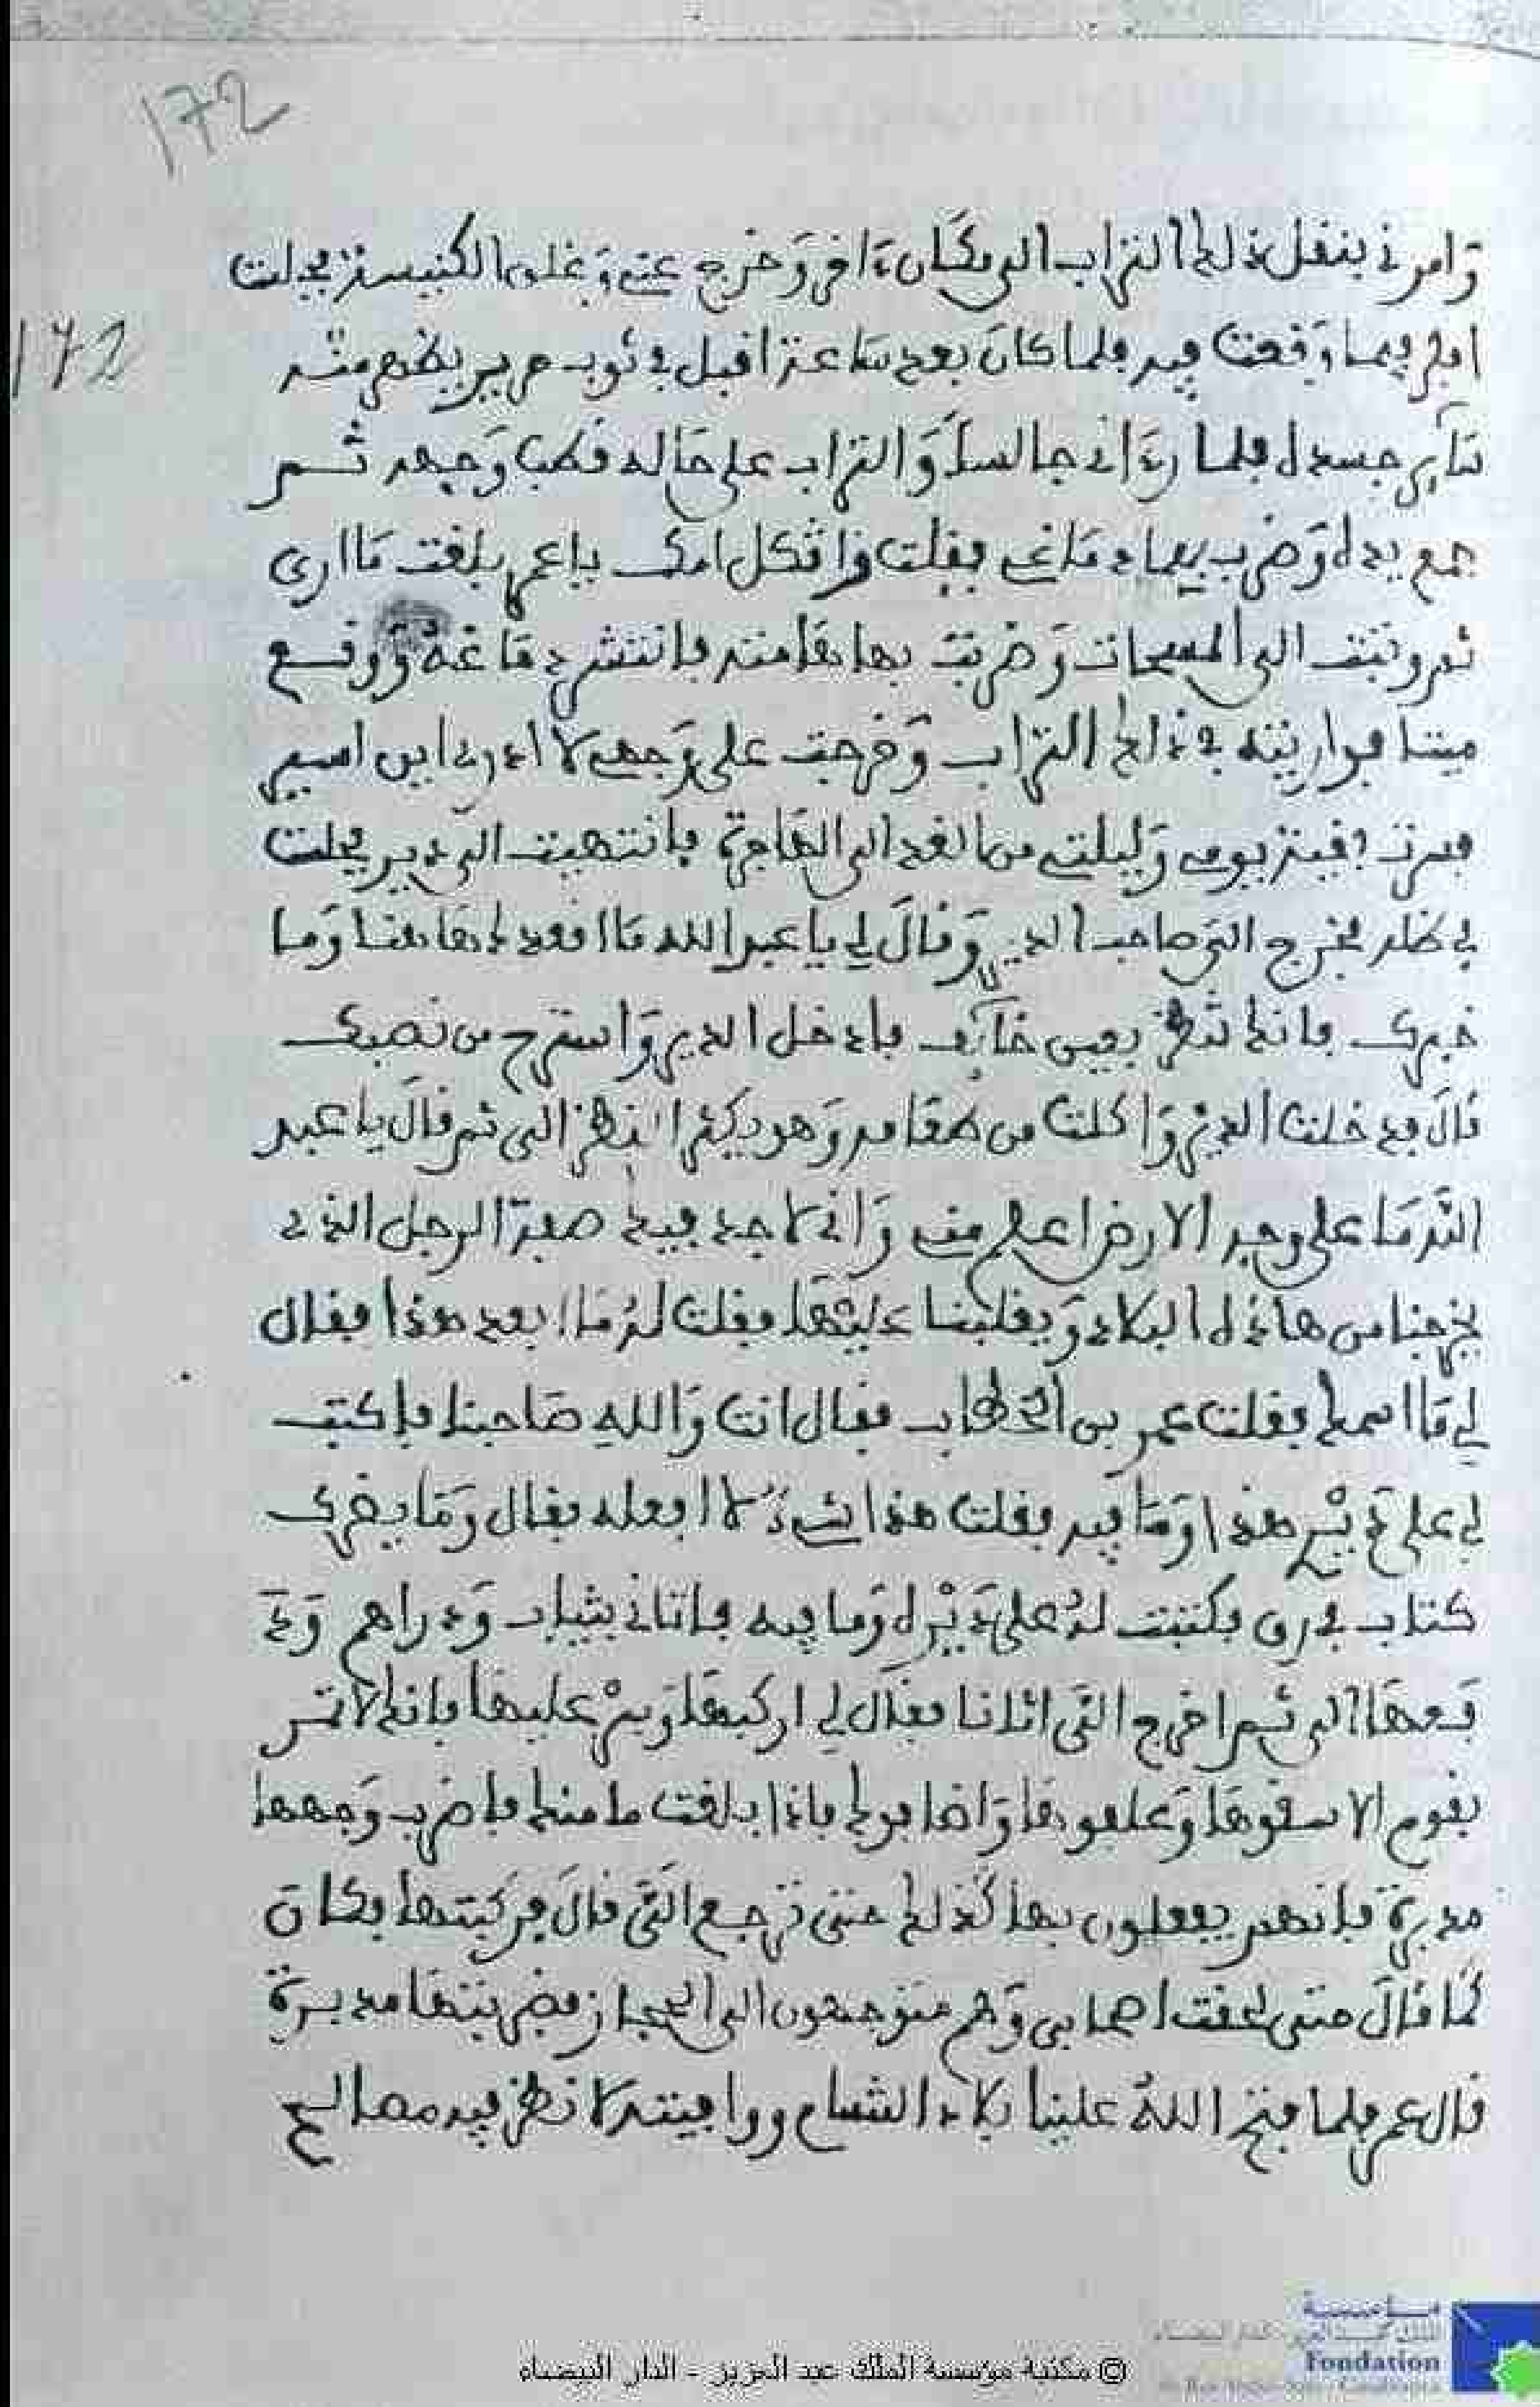 172
وامرني بنقل ذلك التراب الى مكان ءاخر وخرج عني وغلق الكنيسة فجلست
172
افكر فيما وقعت فيه فلما كان بعد ساعة اقبل في ثوب حرير يظهر منه
سآير جسده فلما رءاني جالسا والتراب على حاله قطب وجهه ثم
جمع يده وضرب بهما دماغي فقلت واثكل امك يا عمر بلغت ما ارى
ثم وثبت الى المسحات وضربت بها هامته فانتثر دماغه ووقع
ميتا فواريته في ذالك التراب وخرجت على وجهي لا ادري اين اسير
فسرت بقية يومي وليلتي من الغد الى الهاجرة فانتهيت الى دير فجلست
في ظله فخرج الي صاحب الدير وقال لي يا عبد الله ما اقعدك هاهنا وما
خبرك فانك تنظر بعين خآئف فادخل الدير واسترح من نصبك
قال فدخلت الدير واكلت من طعامه وهو يكثر النظر الي ثم قال يا عبد
الله ما على وجه الارض اعلم مني واني لاجد فيك صفة الرجل الذي
يخرجنا من هاذه البلاد ويغلبنا عليها فقلت له ما ابعد هذا فقال
لي ما اسمك فقلت عمر بن الخطاب فقال انت والله صاحبنا فاكتب
لي على ديري هذا وما فيه فقلت هذا شيء لا افعله فقال وما يضرك
كتاب في رق فكتبت له على ديره وما فيه فاتاني بثياب ودراهم ود
فعها الي ثم اخرج الي اتانا فقال لي اركبها وسر عليها فانك لا تمر
بقوم الا سقوها وعلفوها واضافوك فاذا بلغت مامنك فاضرب وجهها
مدبرة فانهم يفعلون بها كذلك حتى ترجع الي قال فركبتها فكان
كما قال حتى لحقت اصحابي وهم متوجهون الى الحجاز فضربتها مدبرة
قال عمر فلما فتح الله علينا بلاد الشام ووافيته لانظر فيه مصالح
مؤسسة
Fondation
© مكتبة مؤسسة الملك عبد العزيز - الدار البيضاء